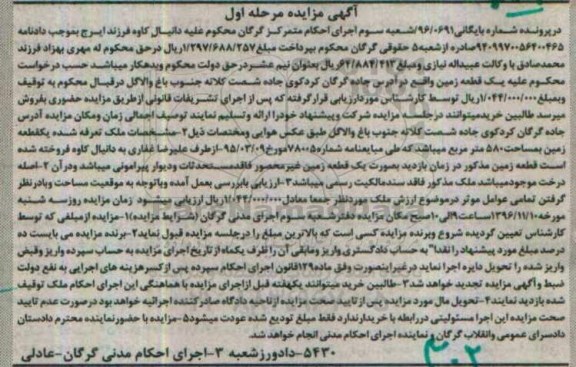 آگهی مزایده مرحله اول
در پرونده شماره بایگانی ۹۶/۰۶۹۱/شعبه سوم اجرای احکام متمرکز گرگان محکوم علیه دانیال کاوه فرزند ایرج بموجب دادنامه
۹۴۰۹۹۷۰۰۵۶۴۰۰۴۶۵صادره از شعبه۵ حقوقی گرگان محکوم بپرداخت مبلغ۱/۲۹۷/۶۸۸/۲۵۷ریال درحق محکوم له مهری بهزاد فرزند
محمدصادق با وکالت عبیداله نیازی ومبلغ ۶۴/۸۸۴/۴۱۳ریال بعنوان نیم عشردرحق دولت محکوم وبدهکار میباشد حسب درخواست
محکوم علیه یک قطعه زمین واقع در آدرس جاده گرگان کردکوی جاده شصت کلاته جنوب باغ والاگل درقبال محکوم به توقیف
وبمبلغ۱/۰۴۴/۰۰۰/۰۰۰ریال توسط کارشناس موردارزیابی قرارگرفته که پس از اجرای تشریفات قانونی ازطریق مزایده حضوری بفروش
میرسد طالبین خریدمیتوانند درجلسه مزایده شرکت وپیشنهاد خودرا ارائه وتسلیم نمایند توصیف اجمالی زمان ومکان مزایده آدرس
جاده گرگان کردکوی جاده شصت کلاته جنوب باغ والاگل طبق عکس هوایی ومختصات ذیل۲-مشخصات ملک تعرفه شده یکقطعه
زمین بمساحت۵۸۰ متر مربع میباشدکه طی مبایعنامه شماره۷۸۰۰۵مورخ۹۵/۰۳/۰۹ازطرف علیرضا غفاری به دانیال کاوه فروخته شده
است قطعه زمین مذکور در زمان بازدید بصورت یک قطعه زمین غیرمحصور فاقدمستحدثات ودیوار پیرامونی میباشد ودرآن ۲-اصله
درخت موجودمیباشد ملک مذکور فاقد سندمالکیت رسمی میباشد۳-ارزیابی بابررسی بعمل آمده وباتوجه به موقعیت مساحت وبادرنظر
گرفتن تمامی عوامل موثر درموضوع ارزش ملک موردنظر جمعا معادل۱/۰۴۴/۰۰۰/۰۰۰ریال ارزیابی میشود زمان مزایده روزسه شنبه
مورخه۱۳۹۶/۱۱/۱۰ساعت۹الی۱۰صبح مکان مزایده دفترشعبه سوم اجرای مدنی گرگان (شرایط مزایده)۱-مزایده ازمبلغی که توسط
کارشناس تعیین گردیده شروع وبرنده مزایده کسی است که بالاترین مبلغ را درجلسه مزایده قبول نماید۲-برنده مزایده می بایست ده
درصد مبلغ مورد پیشنهاد را نقدا" به حساب دادگستری واریز ومابقی آن را ظرف یکماه از تاریخ اجرای مزایده به حساب سپرده واریز وقبض
واریز شده را تحویل دایره اجرا نماید درغیراینصورت وفق ماده۱۲۹قانون اجرای احکام سپرده پس ازکسرهزینه های اجرایی به نفع دولت
ضبط وآگهی مزایده تجدید خواهد شد۳-طالبین خرید میتوانند یکهفته قبل ازاجرای مزایده با هماهنگی این اجرای احکام ملک توقیف
شده بازدید نمایند۴-تحویل مال مورد مزایده پس از تایید صحت مزایده ازناحیه دادگاه صادرکننده اجرائیه خواهد بود درصورت عدم تایید
صحت مزایده این اجرا مسئولیتی دررابطه با خریدارندارد فقط مبلغ تودیع شده عودت میشود۵-مزایده با حضورنماینده محترم دادستان
دادسرای عمومی وانقلاب گرگان و نماینده اجرای احکام مدنی انجام خواهدشد.
۵۴۳۰-دادورزشعبه ۳-اجرای احکام مدنی گرگان-عادلی